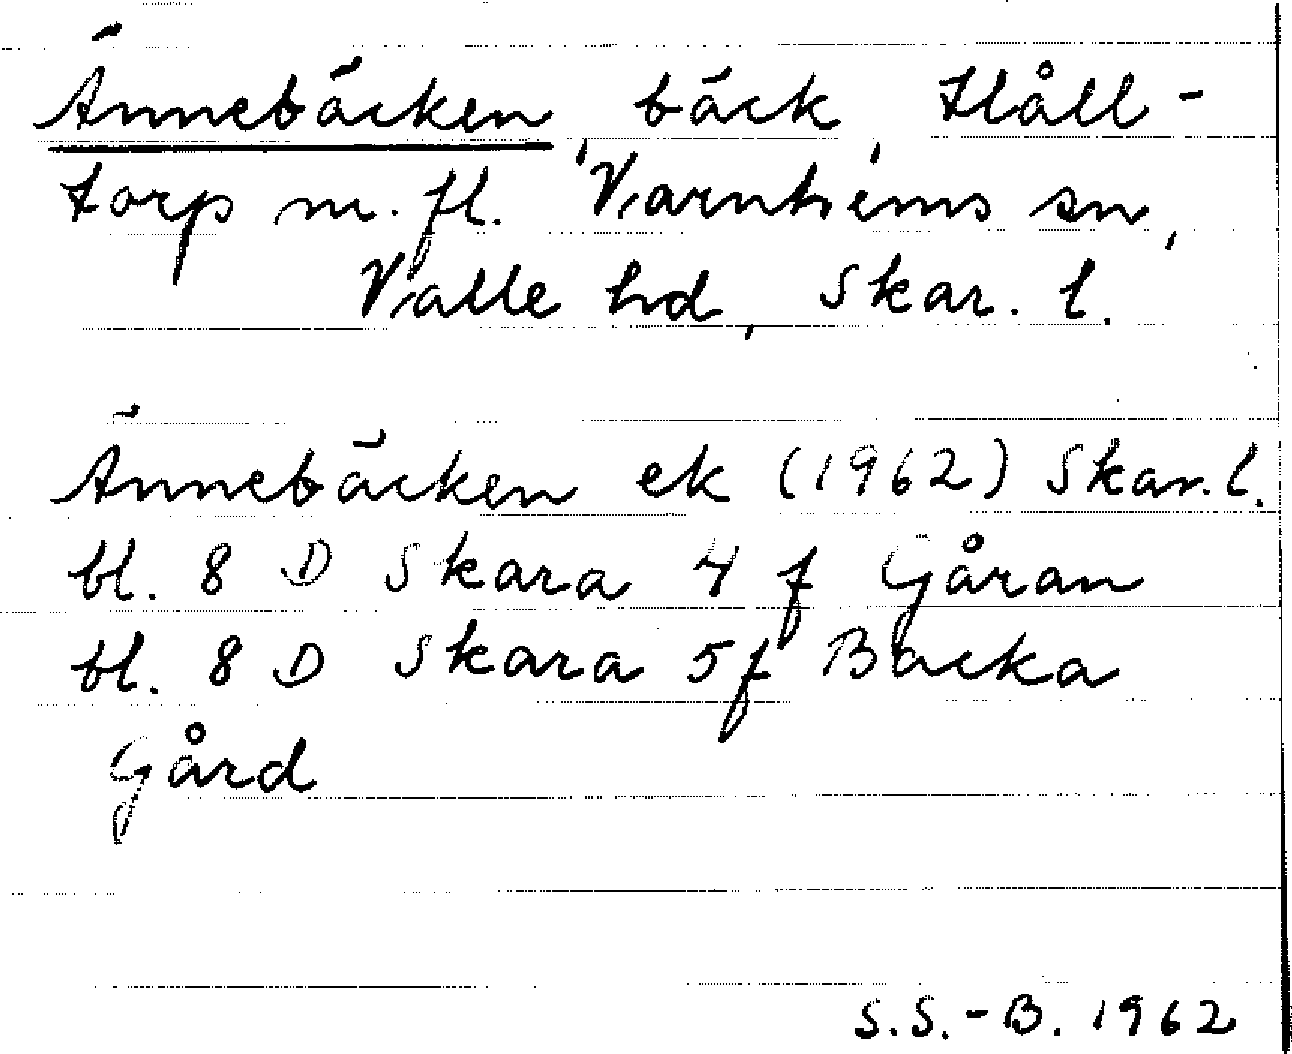 Ännebäcken, bäck, Håll-
torp m. fl. Varnhems sn,
Valle hd, Skar. l.
Ännebäcken ek (1962) Skar. l.
bl. 8 D Skara 4 f Gåran
bl. 8 D Skara 5 f Backa
Gård
S.S.-B. 1962